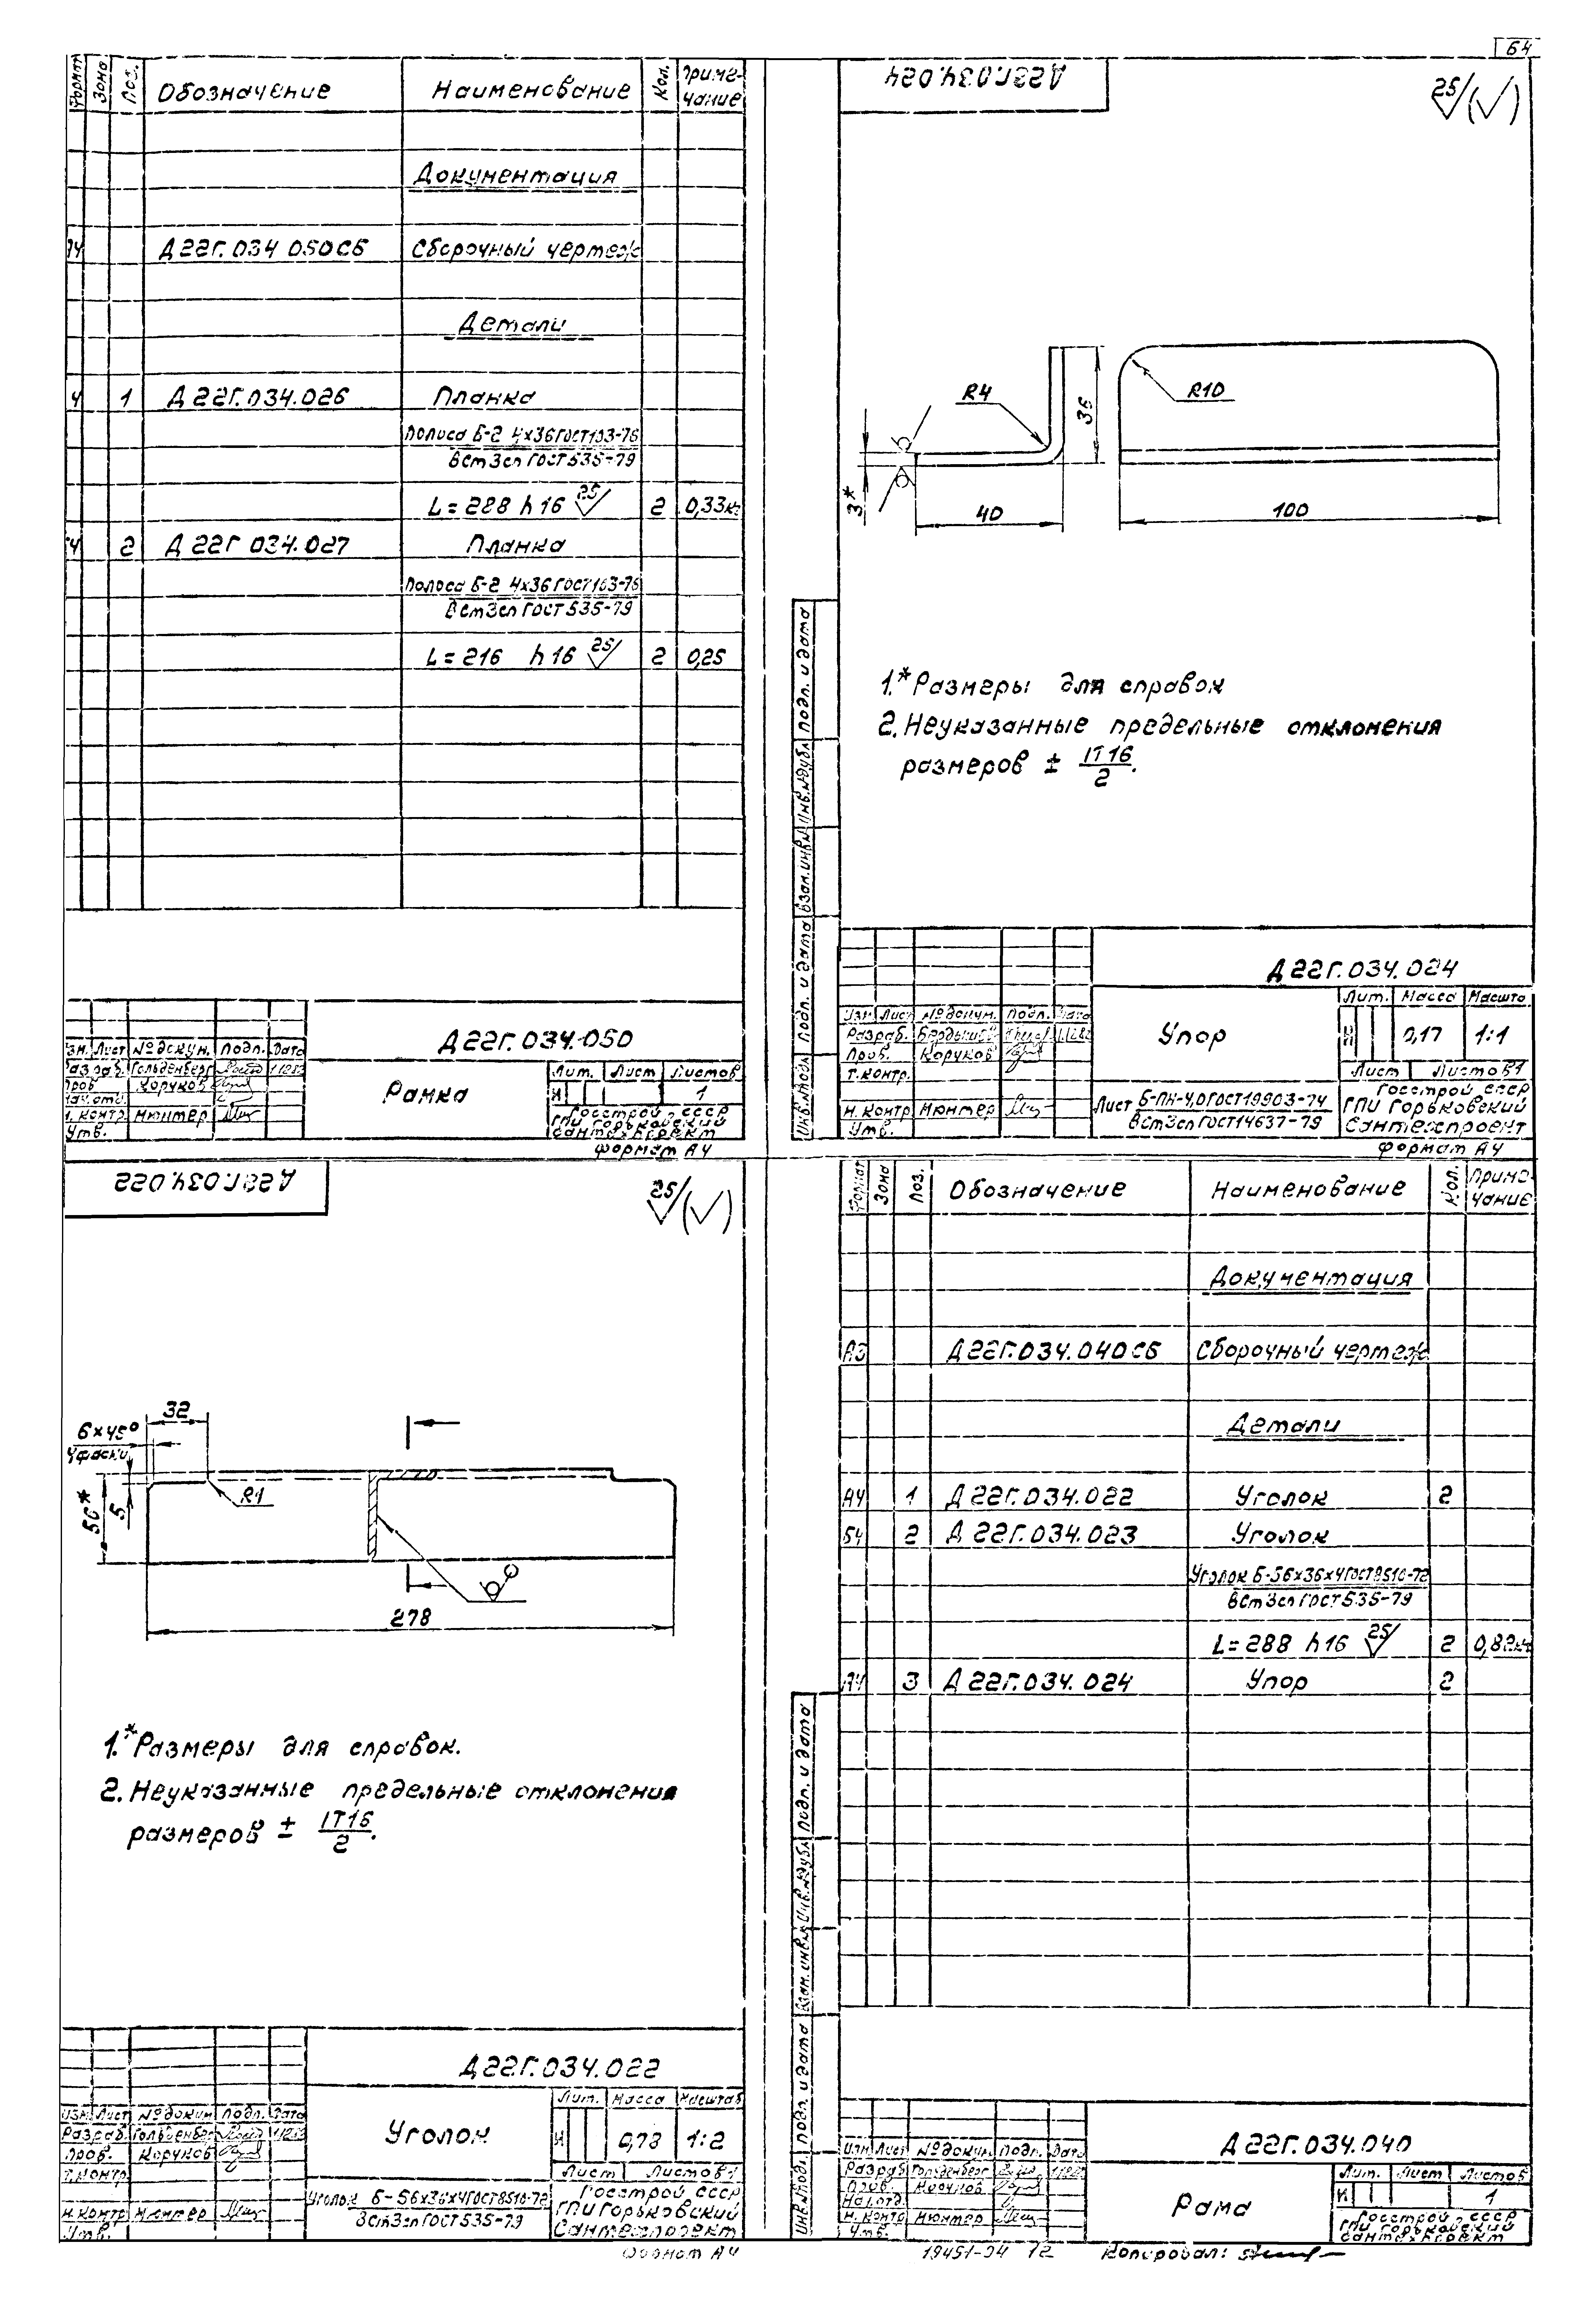 64
Формат Зона Поз. Обозначение Наименование Кол. Приме-
чание
Документация
А4 Д22Г.034.050СБ Сборочный чертеж
Детали
1 Д22Г.034.026 Планка
Полоса Б-2 4×36 ГОСТ103-76
ВСт3сп ГОСТ 535-79
L=288 h16 25 2 0,33кг
2 Д22Г.034.027 Планка
Полоса Б-2 4×36 ГОСТ103-76
ВСт3сп ГОСТ 535-79
L=216 h16 25 2 0,25
Д22Г.034.050
Изм. Лист № докум. Подп. Дата
Разраб. Гольденберг
Пров. Коруков
Нач. отд.
Н. контр. Мюнтер
Утв.
Рамка
Лит. Лист Листов
И 1
Госстрой СССР
ГПИ Горьковский
Сантехпроект
Формат А4
Д22Г.034.024
25 (√)
R4
36
R10
3*
40
100
1.* Размеры для справок
2. Неуказанные предельные отклонения
размеров ± IT16
2.
Инв.№подл. Подп. и дата Взам.инв.№ Инв.№дубл. Подп. и дата
Д22Г.034.024
Изм. Лист № докум. Подп. Дата
Разраб.
Пров. Коруков
Т.контр.
Н. контр. Мюнтер
Утв.
Упор
Лит. Масса Масшта.
И 0,17 1:1
Лист Листов 1
Лист Б-ПН-4,0 ГОСТ19903-74
ВСт3сп ГОСТ14637-79
Госстрой СССР
ГПИ Горьковский
Сантехпроект
Формат А4
Д22Г.034.022
25 (√)
32
6×45°
4 фаски
56*
5
R1
278
1.* Размеры для справок.
2. Неуказанные предельные отклонения
размеров ± IT16
2.
Д22Г.034.022
Изм. Лист № докум. Подп. Дата
Разраб. Гольденберг
Пров. Коруков
Т.контр.
Н. контр. Мюнтер
Утв.
Уголок
Лит. Масса Масштаб
И 0,78 1:2
Лист Листов 1
Уголок Б-56×36×4 ГОСТ8510-72
ВСт3сп ГОСТ 535-79
Госстрой СССР
ГПИ Горьковский
Сантехпроект
Формат А4
Формат Зона Поз. Обозначение Наименование Кол. Приме-
чание
Документация
А3 Д22Г.034.040СБ Сборочный чертеж
Детали
А4 1 Д22Г.034.022 Уголок 2
БЧ 2 Д22Г.034.023 Уголок
Уголок Б-56×36×4 ГОСТ8510-72
ВСт3сп ГОСТ 535-79
L=288 h16 25 2 0,82кг
А4 3 Д22Г.034.024 Упор 2
Инв.№подл. Подп. и дата Взам.инв.№ Инв.№дубл. Подп. и дата
Д22Г.034.040
Изм. Лист № докум. Подп. Дата
Разраб. Гольденберг
Пров. Коруков
Нач.отд.
Н. контр. Мюнтер
Утв.
Рама
Лит. Лист Листов
И 1
Госстрой СССР
ГПИ Горьковский
Сантехпроект
19451-04 12 Копировал: